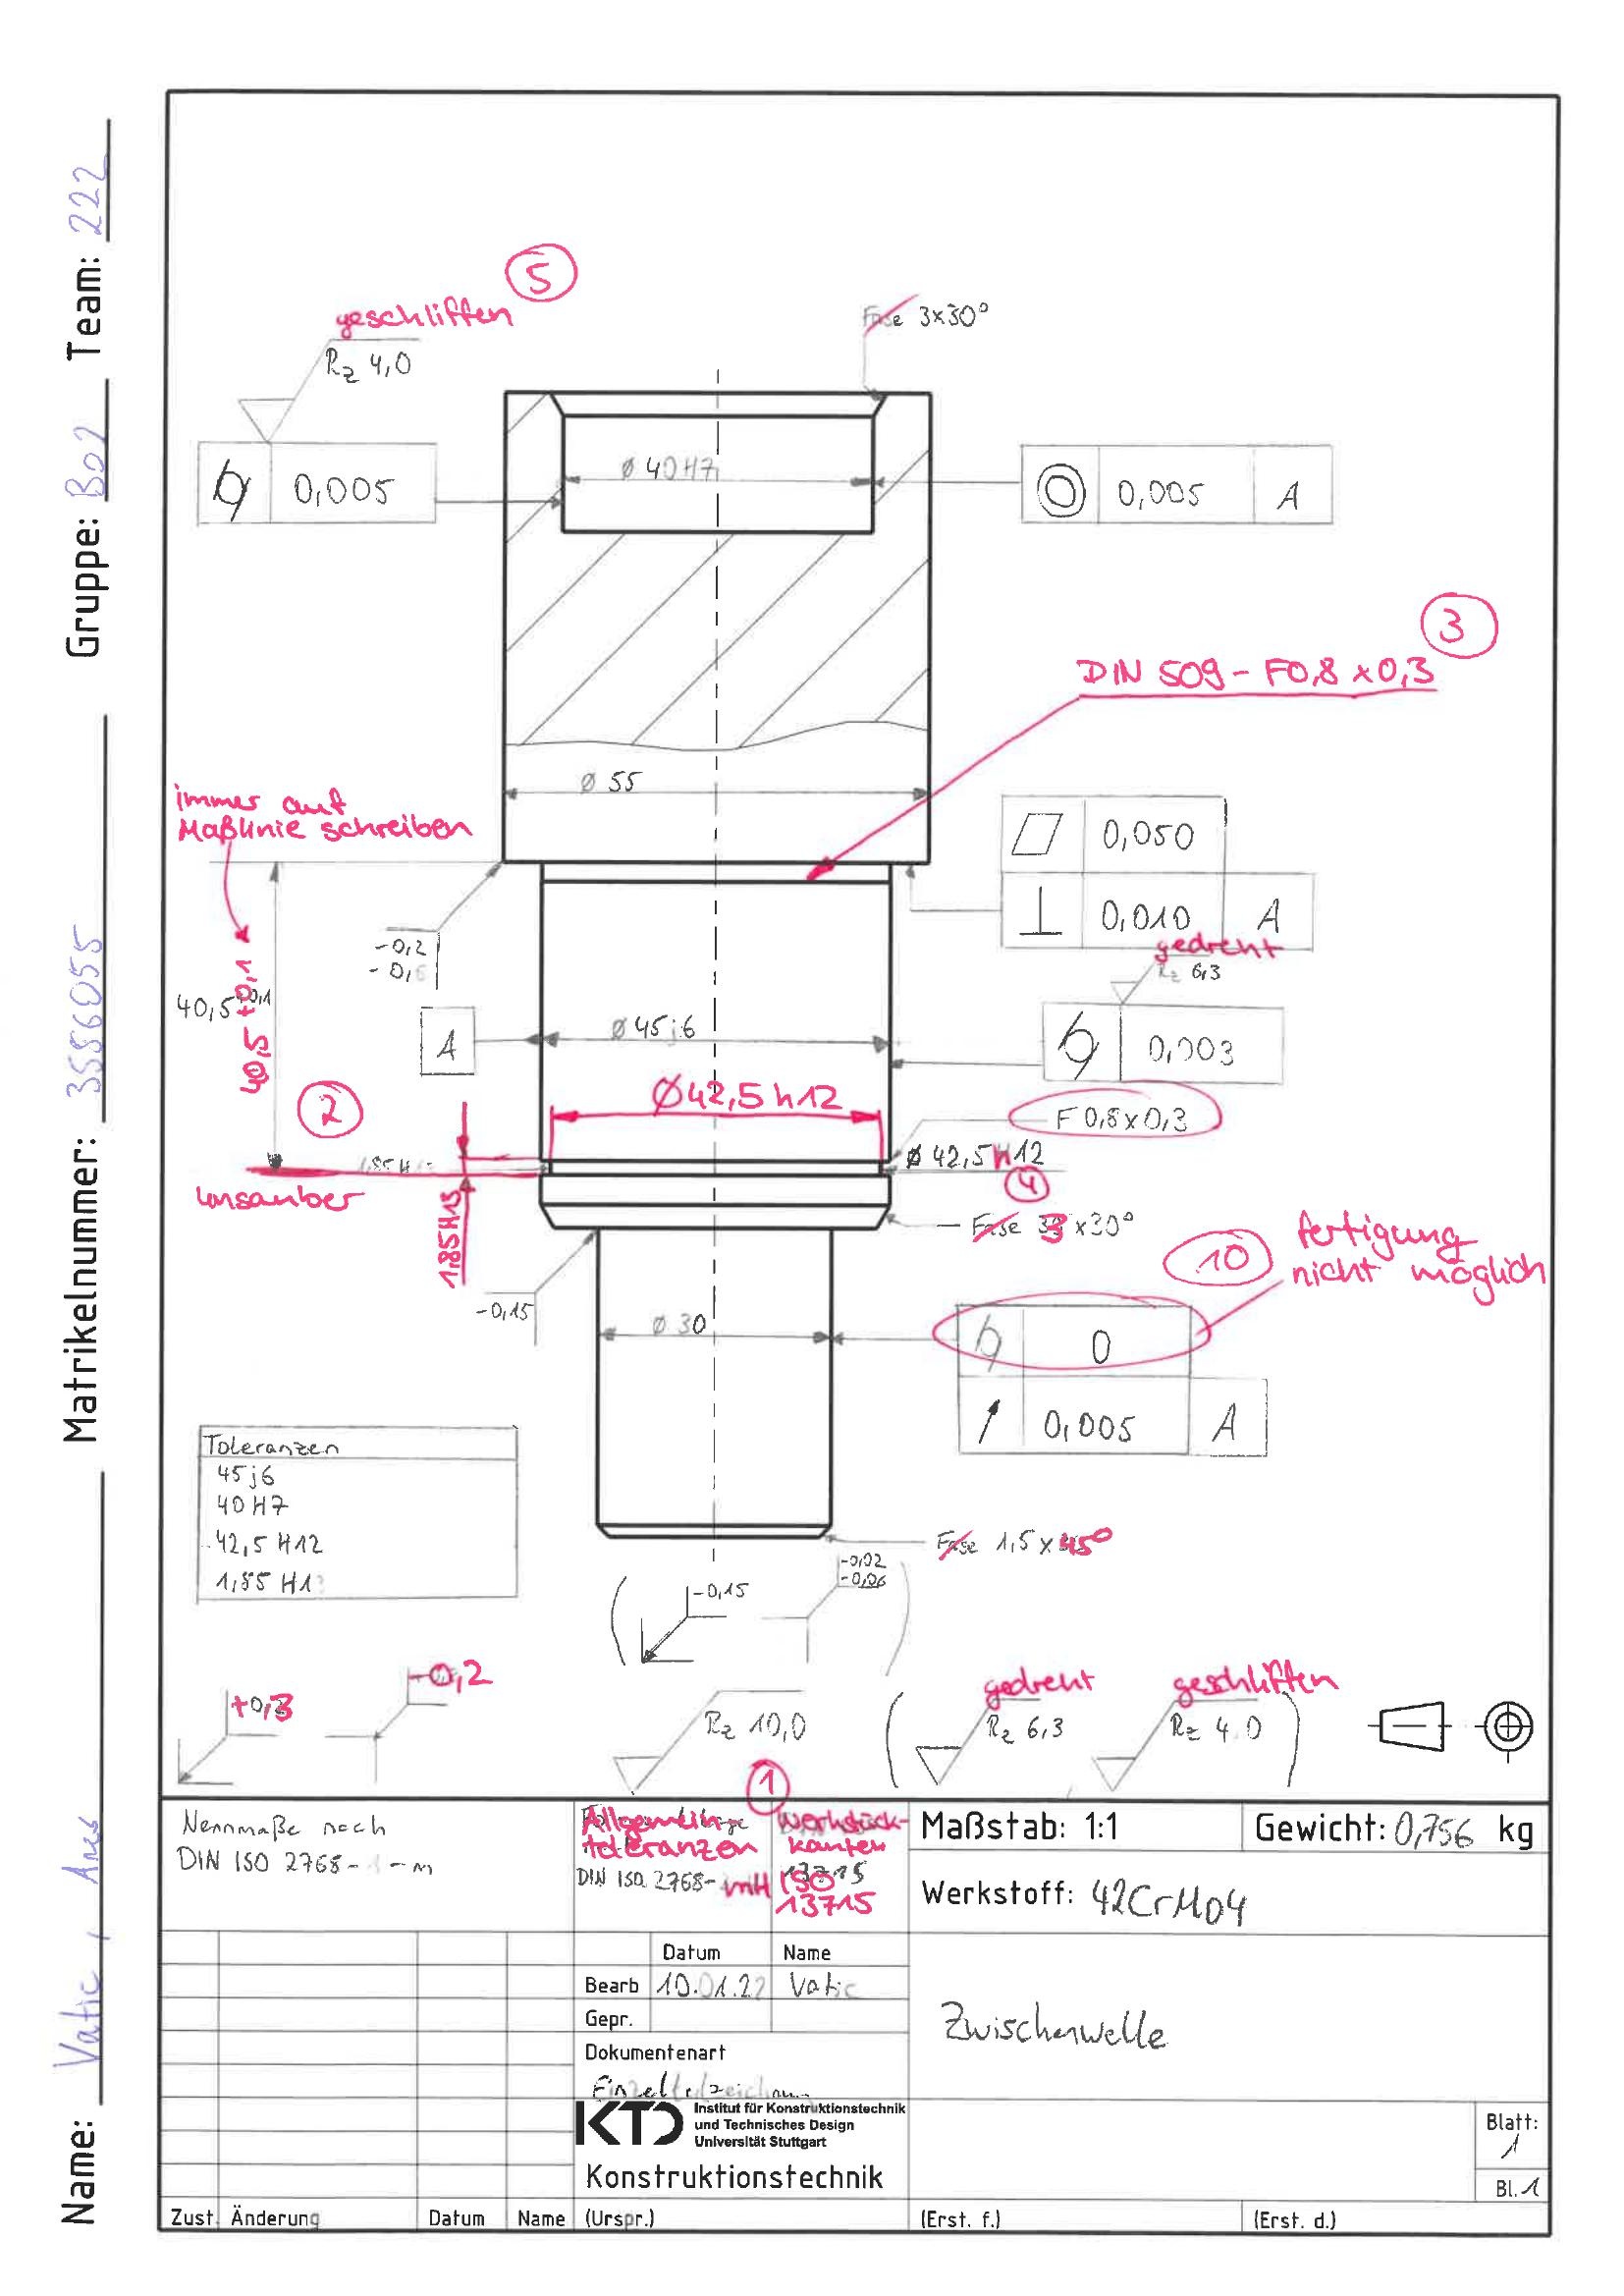 Name: Vatic, Anes Matrikelnummer: 3556055 Gruppe: B02 Team: 222
5
geschliffen
Rz 4,0
0,005
Fase 3x30°
Ø 40H7
0,005 A
3
DIN 509 - F0,8 x 0,3
Ø 55
immer auf
Maßlinie schreiben
0,050
0,010 A
-0,2
gedreht
Rz 6,3
40,5 +0,1
40,5 +0,1
A
Ø 45j6
0,003
2
Ø42,5 h12
F 0,8 x 0,3
1,85 H
Ø 42,5 h12
unsauber
4
1,85H13
Fase 3 x30°
10
fertigung
nicht möglich
-0,15
Ø 30
0
0,005 A
Toleranzen
45j6
40H7
42,5 H12
1,85 H1
Fase 1,5 x 45°
-0,15
-0,02
-0,06
+0,3
-0,2
Rz 10,0
gedreht
Rz 6,3
geschliffen
Rz 4,0
1
Nennmaße nach
DIN ISO 2768- -m
Allgemein-
toleranzen
DIN ISO 2768- mH
Werkstück-
kanten
13715
ISO
13715
Maßstab: 1:1
Gewicht: 0,756 kg
Werkstoff: 42CrMo4
Datum Name
Bearb 10.01.22 Vatic
Gepr.
Dokumentenart
Zwischenwelle
KTD
Institut für Konstruktionstechnik
und Technisches Design
Universität Stuttgart
Konstruktionstechnik
Blatt:
1
Bl. 1
Zust. Änderung Datum Name (Urspr.) (Erst. f.) (Erst. d.)